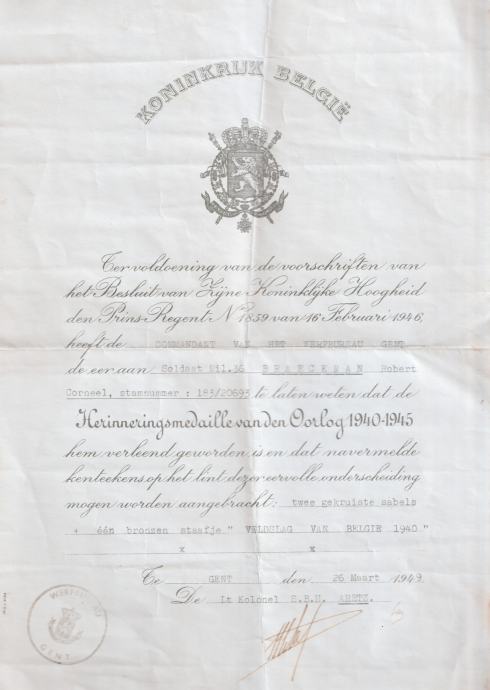 KONINKRIJK BELGIË
Ter voldoening van de voorschriften van
het Besluit van Zijne Koninklijke Hoogheid
den Prins-Regent Nr 1859 van 16 Februari 1946,
heeft de COMMANDANT VAN HET WERFBUREAU GENT
de eer aan Soldaat Mil.36 BRAECKMAN Robert
Corneel, stamnummer : 183/20693 te laten weten dat de
Herinneringsmedaille van den Oorlog 1940-1945
hem verleend geworden is en dat navermelde
kenteekens op het lint dezer eervolle onderscheiding
mogen worden aangebracht: twee gekruiste sabels
+ één bronzen staafje " VELDSLAG VAN BELGIE 1940 "
x x
Te GENT den 26 Maart 1949
De Lt Kolonel S.B.H. ARETZ.
GENT